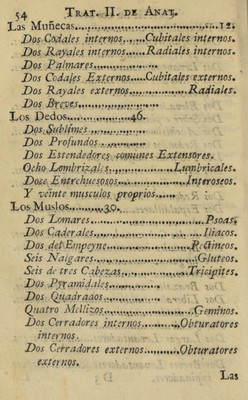 54 TRAT. II. DE ANAT.
Las Muñecas....................12.
Dos Codales internos......Cubitales internos.
Dos Rayales internos......Radiales internos.
Dos Palmares................
Dos Codales Externos....Cubitales externos.
Dos Rayales externos............Radiales.
Dos Breves................
Los Dedos................46.
Dos Sublimes................
Dos Profundos................
Dos Estendedores comunes Extensores.
Ocho Lombrizales................Lumbricales.
Doce Entrehuesosos............Interoseos.
Y veinte musculos proprios......
Los Muslos..........30.
Dos Lomares................Psoas,
Dos Caderales................Iliacos.
Dos del Empeyne................Pectineos.
Seis Naigares................Gluteos.
Seis de tres Cabezas............Tricipites.
Dos Pyramidales................
Dos Quadrados................
Quatro Mellizos................Geminos.
Dos Cerradores internos........Obturatores
internos.
Dos Cerradores externos........Obturatores
externos.
Las